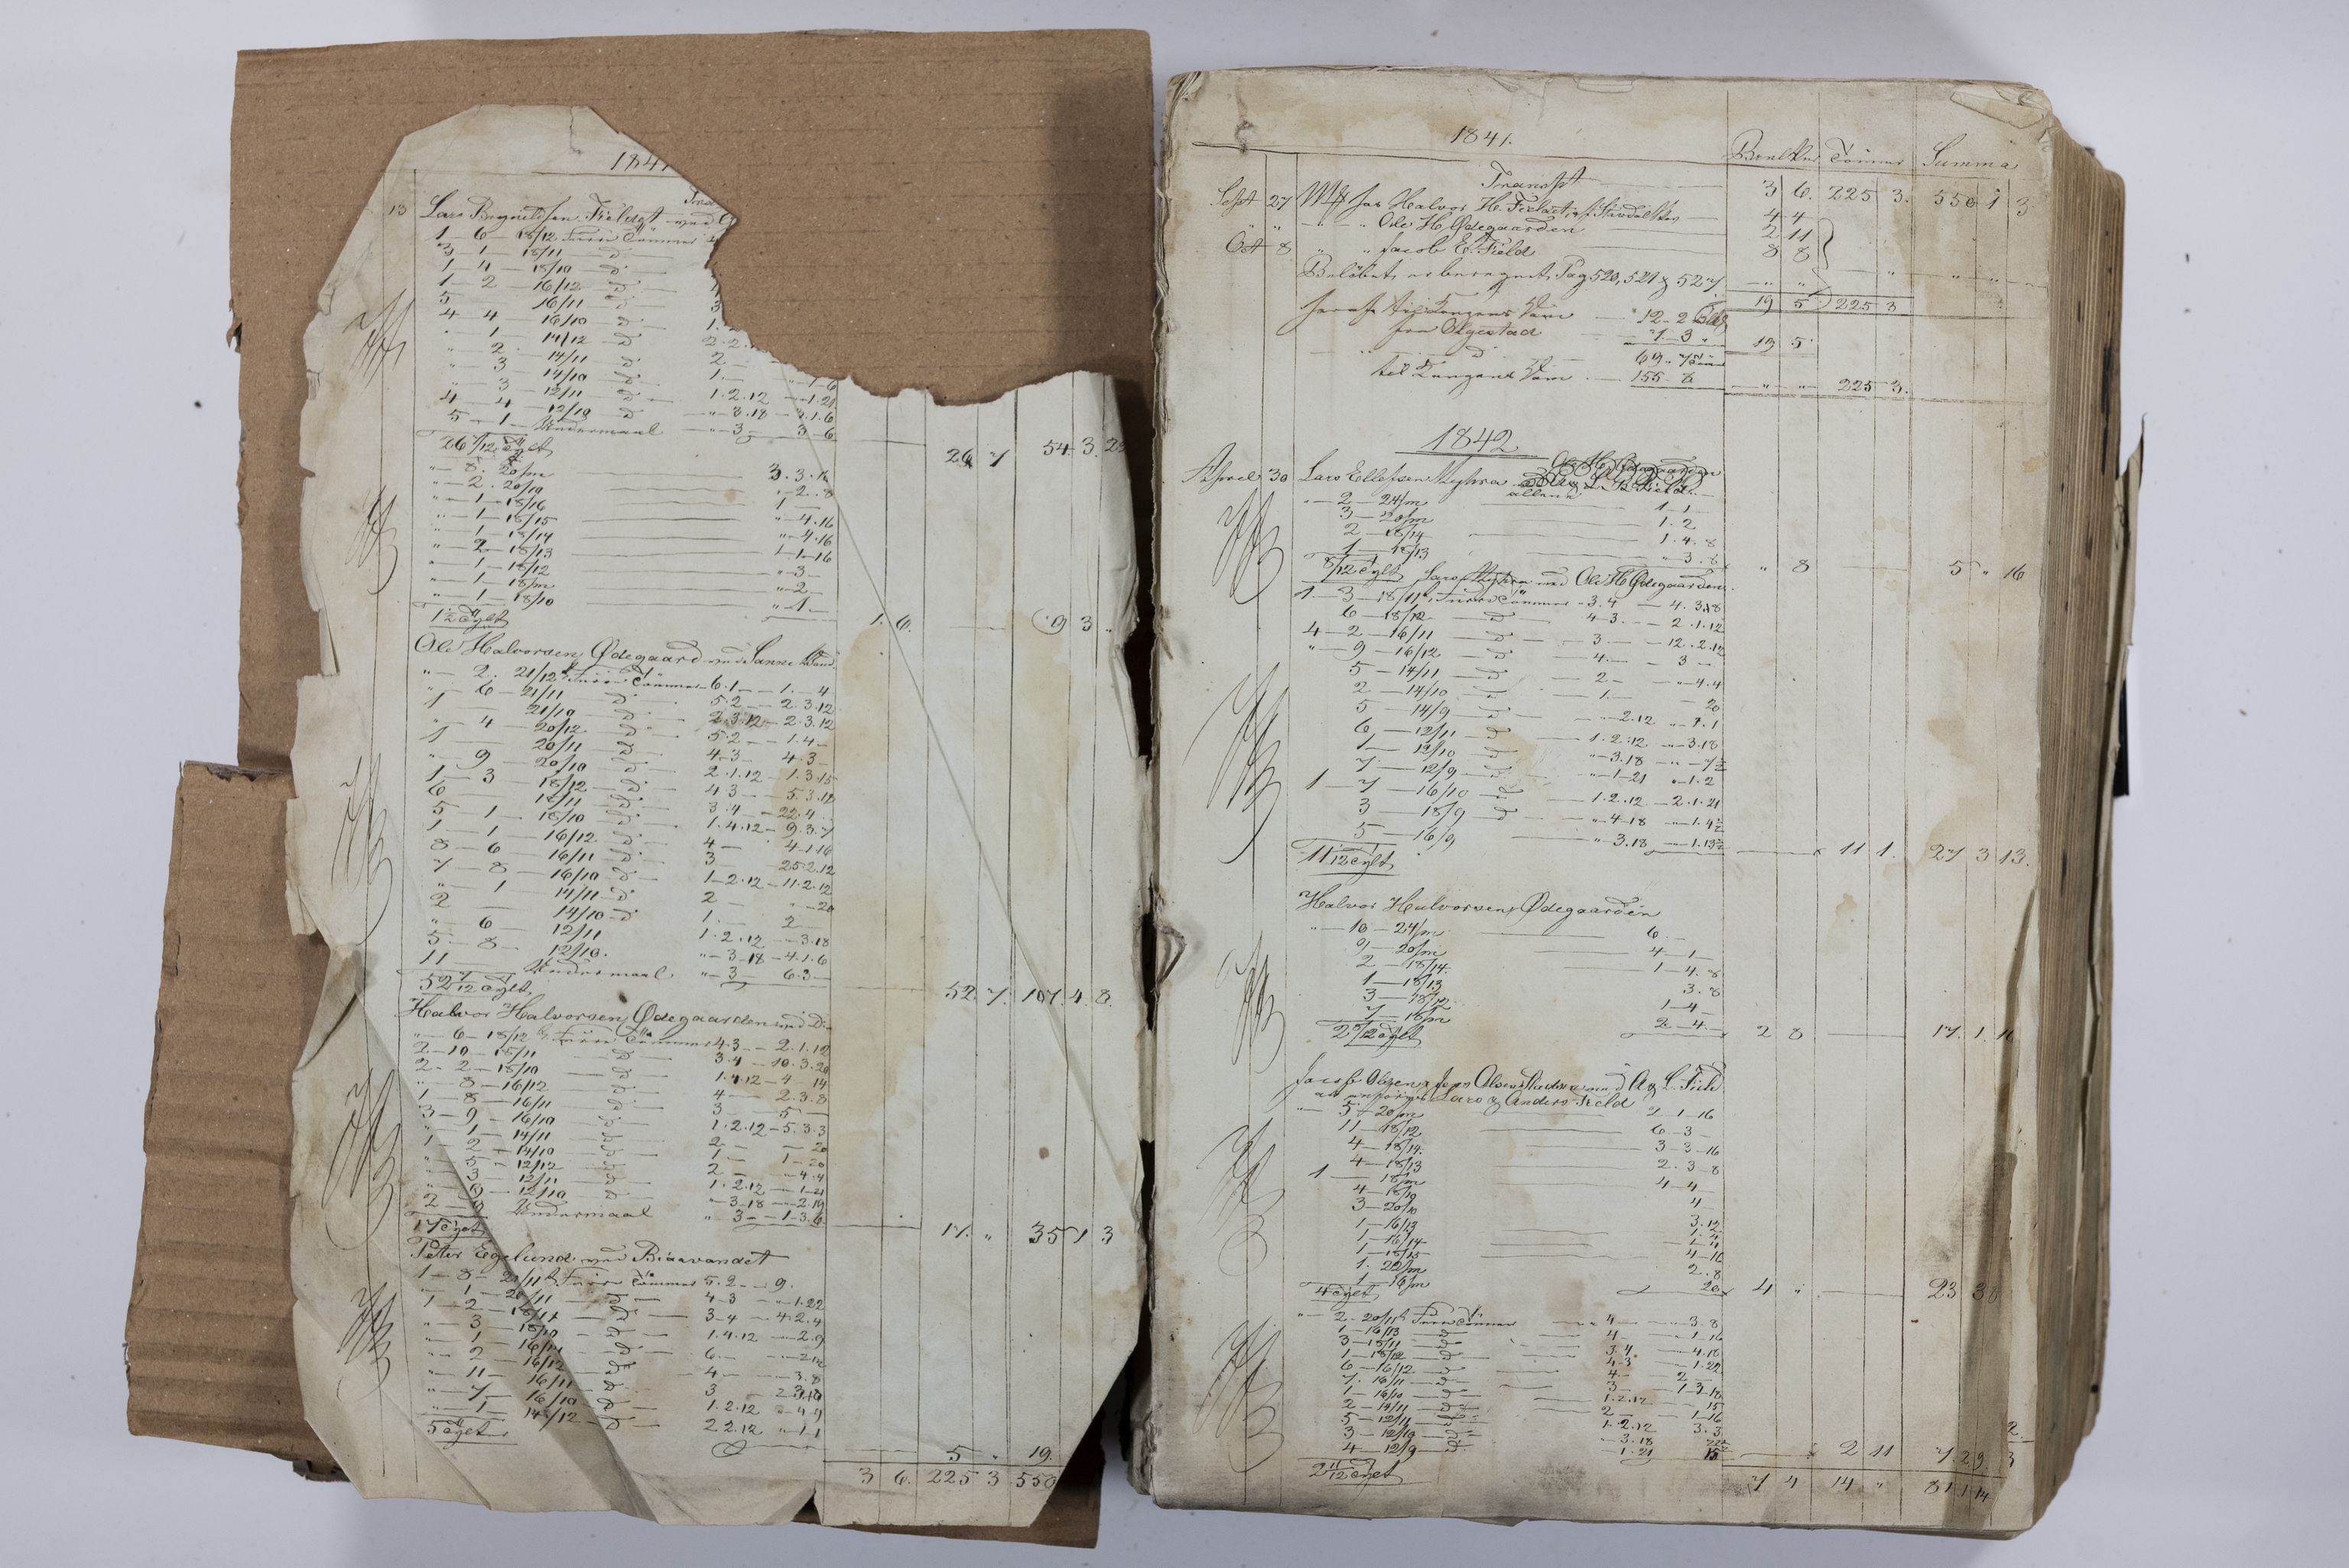 1841
13 Lars Fieldgt med
1 - 6 - 18/12 Furre Tömmer
3 - 1 - 18/11 - d
1 - 4 - 18/10 - d
1 - 2 - 16/12 d
5 16/11 d
4 - 4 - 16/10 d
" 1 - 14/12 - d 2.2.
" 2 - 14/11 - d 2 -
" 3 - 14/10 d 1. - " 1-6
" 3 - 12/11 d 1.2.12 - 1.21
4 - 4 - 12/10 d " 3.18 - 3.1.6
5 - 1 - Undermaal " 3 - 3-6
26 7/12 Tylt 26 7 54 3 22
" 8. 20/m 3.3.16
" 2. 20/10 " 2.8
" 1 - 18/16 1 -
" 1 - 18/15 " 4.16
" 1 - 18/14 " 4.16
" 2 - 18/13 1-1-16
" 1 - 18/12 " 3 -
" 1 - 18/m " 2 -
" 1 - 18/10 " 1 -
1 1/2 Tylt 1. 6. 9 3 "
Ole Halvorsen Ødegaard med
" 2. 21/12 Furre Tömmer - 6.1 - 1. - 4
" 6 - 21/11 d 5.2 - 2.3.12
1 21/10 d 2.3.12 - 2.3.12
" 4 20/12 d 5.2 - 1.4 -
1 20/11 d 4.3 - 4.3 -
" 9 20/10 d 2.1.12 - 1.3.15
1 - 3 18/12 d 4.3 - 5.3.18
6 18/11 d 3.4 - 22.4
5 1 18/10 d 1.4.12 - 9.3.7
1 1 16/12 d 4 - 4.1.16
8 - 6 16/11 d 3 25.2.12
7 - 8 - 16/10 d 1-2.12 - 11.2.12
" 1 14/11 d 2 - " - 20
2 14/10 d 1. 2 -
" 6 12/11 1.2.12 - 3.18
5 8 - 12/10. " 3-18 - 4.1.6
11 Undermaal " 3 - 6.3 -
52 7/12 Tylt 52 7. 107 4 8.
Halvor Halvorsen Ødegaarden med D
" 6 - 18/12 Furre Tömmer 4.3 - 2.1.12
2 - 10 - 18/11 d 3.4 - 10.3.20
2 - 2 - 18/10 d 1.4.12 - 4 - 14
" 8 - 16/12 d 4 - 2.3.8
1 - 8 - 16/11 d 3 - 5 -
3 - 9 - 16/10 d 1.2.12 - 5.3.3
" 1 - 14/11 d 2 - - 20
1 2 - 14/10 d 1 - 1 - 20
" 5 - 12/12 d 2 - " 4.4
" 3 - 12/11 d 1.2.12 - 1-21
" 9 - 12/10 d " 3-18 - 2.19
2 - 9 Undermaal " 3 - 1-3.6
17 Tylt 17. " 35 1 3
Peter Egelund med Biaavandet
1 - 8 - 21/11 Furre Tömmer 5.2 - 9.
" 1 - 20/11 d 4-3 " 1.22
1 - 2 - 18/11 d 3-4 - 4.2.4
" 3 - 18/10 d 1.4.12 - 2.9
" 1 - 16/14 d 6. - 2.12
" 2 - 16/12 d 4 - - 3.8
" 11 - 16/11 d 3 - 2 3.18
" 7 - 16/10 d 1.2.12 - 4.9
" 1 - 14/12 d 2 2.12 " 1.1
5 Tylter 5 " 19.
3 6. 225 3 550
1841.
Brulker Tömmer Summa
Transpt 3 6. 225 3. 550 1 3
Sept 27 for Halvor H. Fieldet 4 4
" " " Ole H. Ødegaarden 2 11
Oct 8 " " Jacob E. Field 8 8
Beløbet er beregnet Pag 520, 521 & 527 " " " " "
19 5 225 3
heraf til Tangens Dam 12-2
fra Olgestad " 1-3 " 19 5
69 - 7
til Tangens Dam 155 - 8 " " 225 3.
1842
April 30 Lars Ellefsen Myhra
allene
" 2 - 24/m 1-1-
3 - 20/m 1.2
2 - 18/14 1.4.8
1 - 18/13 " 3.8
8/12 Tylt " 8 5 " 16
Lars Myhra med Ole H. Ødegaarden
1 - 3 - 18/11 Furre Tömmer - 3.4 - 4.3.8
6 - 18/12 d 4-3. - 2.1.12
4 - 2 - 16/11 d - 3 - 12.2.12
" 9 - 16/12 d 4. - 3 -
5 - 14/11 d 2 - " 4.4
2 - 14/10 d 1. - - 20
5 - 14/9 d " 2.12 " 1.1
6 - 12/11 d 1.2.12 " 3.18
1 - 12/10 d " 3.18 " - 7 1/2
7 - 12/9 d " 1-21 " 1.2
1 7 - 16/10 d 1.2.12 - 2.1.21
3 - 18/9 d " 4-18 " 1.4 1/2
5 - 16/9 " 3.18 - 1.13 1/2
11 1/12 Tylt 11 1. 27 3 13.
Halvor Halvorsen Ødegaarden
" 10 - 24/m 6. -
9 - 20/m 4 - 1 -
2 - 18/14 1 - 4. 8
1 - 18/13 3. 8
3 - 18/12 1 - 4 -
7 - 18/m 2 - 4. -
2 8/12 Tylt 2 8 17. 1. 16
Jacob Olsen & Jens Olsen med A & L. Field
Lars & Anders Field
" 5 - 20/m 2 - 1 - 16
11 - 18/12 6 - 3 -
4 - 18/14 3 - 3 - 16
4 - 18/13 2. 3 - 8
1 - 18/m 4 - 4
4 - 18/10 4 -
3 - 20/10 3.12
1 - 16/13
1 - 16/14
1 - 18/15 4 - 16
1. 22/m 2. 8
1 16/m 20
4 Tylt 4 " 23 3 8
" 2. 20/11 Furre Tömmer 4 - 3.8
1 - 16/13 d 4 - - 1-16
3 - 18/11 d 3.4 - 4.18
1 - 18/12 d 4-3 - 1-22
6 - 16/12 d 4 - 2 -
7. 16/11 d 3 - 1-3-18
1 - 16/10 d 1.2.12 15
2 - 14/11 d 2 - 1-16
5 - 12/11 d 1.2.12 3.3
3 - 12/10 d - 3.18
4 - 12/9 d - 1.21 15
2 11/12 Tylt 2 11 7. 2 9.
7 4 14 " 81 1 14